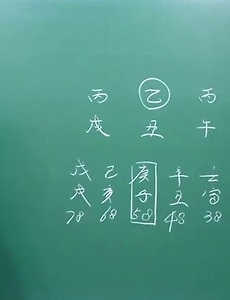 丙 乙 丙
戌 丑 午
戊 己 庚 辛 壬
戌 亥 子 丑 寅
78 68 58 48 38